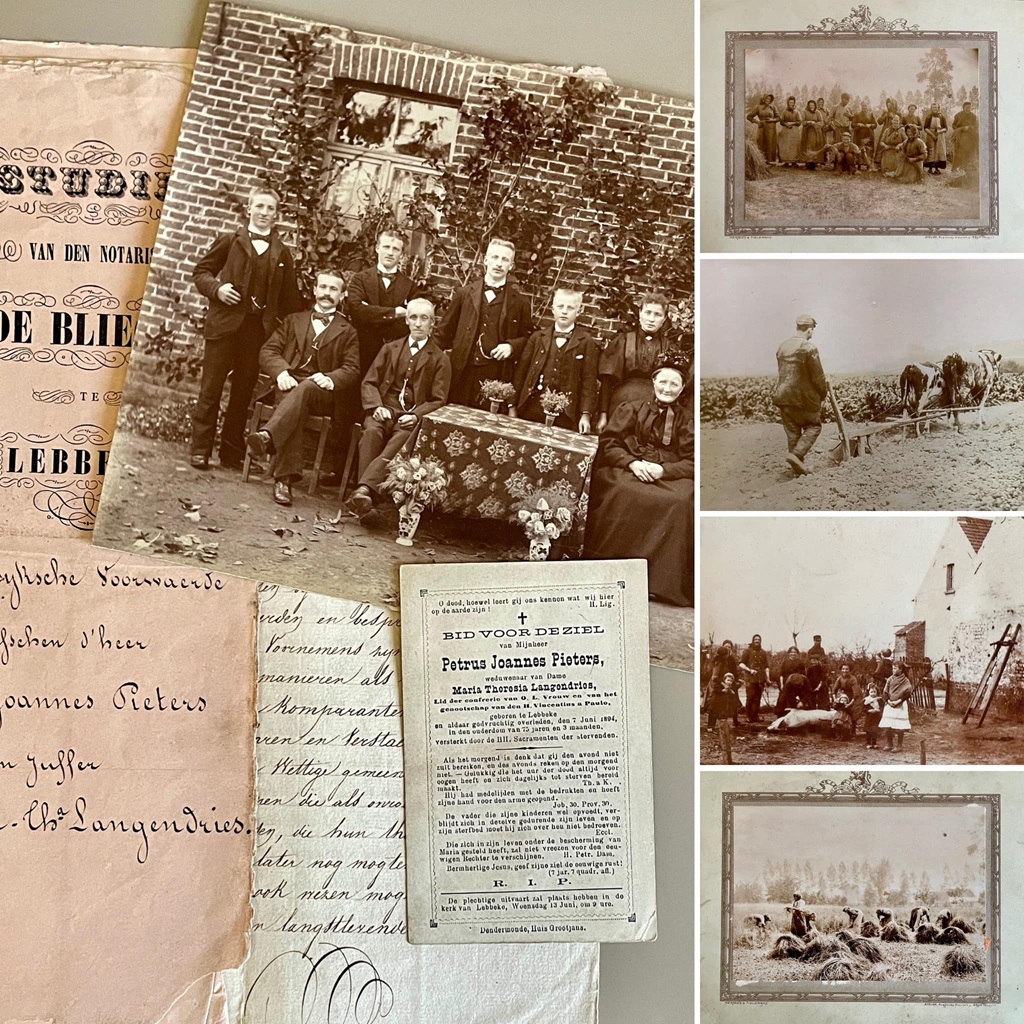 STUDIE
VAN DEN NOTARIS
DE BLIE
TE
LEBBE
yksche Voorwaerde
sschen d'heer
Joannes Pieters
n Juffer
Tha Langendries.
erden en bespr
Voornemens zyn
manieren als
Komparanten
ren en Verstac
Wettige gemeen
die als onro
en, die hun th
later nog mogte
ook nezen mog
n langstlevende
O dood, hoewel leert gij ons kennen wat wij hier
op de aarde zijn ! H. Lig.
BID VOOR DE ZIEL
van Mijnheer
Petrus Joannes Pieters,
weduwenaar van Dame
Maria Theresia Langendries,
Lid der confrerie van O. L. Vrouw en van het
genootschap van den H. Vincentius a Paulo,
geboren te Lebbeke
en aldaar godvruchtig overleden, den 7 Juni 1894,
in den ouderdom van 75 jaren en 3 maanden,
versterkt door de HH. Sacramenten der stervenden.
Als het morgend is denk dat gij den avond niet
zult bereiken, en des avonds reken op den morgend
niet. — Gelukkig die het uur der dood altijd voor
oogen heeft en zich dagelijks tot sterven bereid
maakt. Th. a K.
Hij had medelijden met de bedrukten en hoeft
zijne hand voor den arme geopend.
Job, 30. Prov. 30.
De vader die zijne kinderen wel opvoedt, ver-
blijdt zich in dezelve gedurende zijn leven en op
zijn sterfbed moet hij zich over hen niet bedroeven.
Eccl.
Die zich in zijn leven onder de bescherming van
Maria gesteld heeft, zal niet vreezen voor den eeu-
wigen Rechter te verschijnen. H. Petr. Dam.
Bermhertige Jesus, geef zijne ziel de eeuwige rust!
(7 jar. 7 quadr. afl.)
R. I. P.
De plechtige uitvaart zal plaats hebben in de
kerk van Lebbeke, Woensdag 13 Juni, om 9 ure.
Dendermonde, Huis Grootjans.